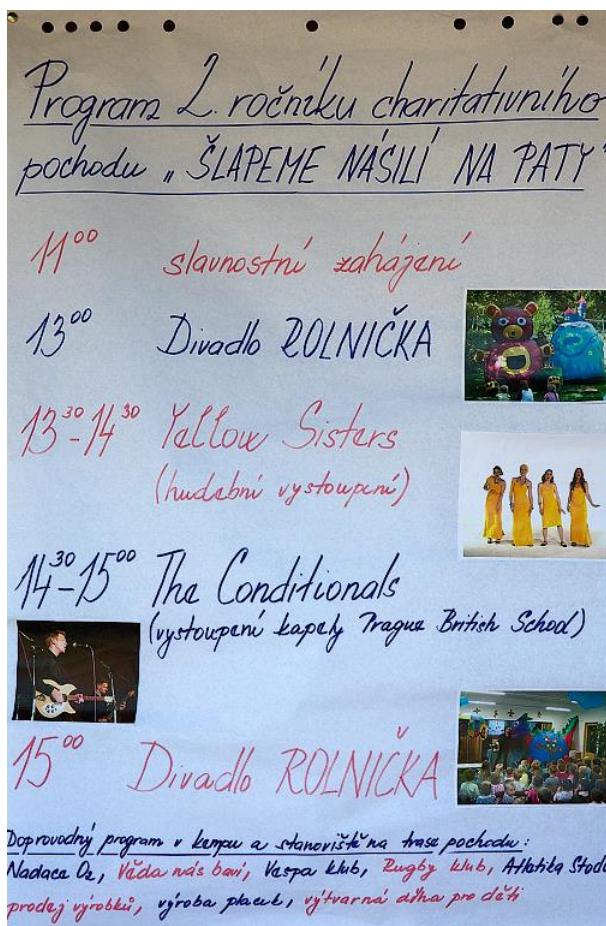 Program 2. ročníku charitativního
pochodu „ŠLAPEME NÁSILÍ NA PATY"
11⁰⁰ slavnostní zahájení
13⁰⁰ Divadlo ROLNIČKA
13³⁰-14³⁰ Yellow Sisters
(hudební vystoupení)
14³⁰-15⁰⁰ The Conditionals
(vystoupení kapely Prague British School)
15⁰⁰ Divadlo ROLNIČKA
Doprovodný program v kempu a stanoviště na trase pochodu:
Nadace O2, Věda nás baví, Vespa klub, Rugby klub, Atletika Stod
prodej výrobků, výroba placek, výtvarná dílna pro děti